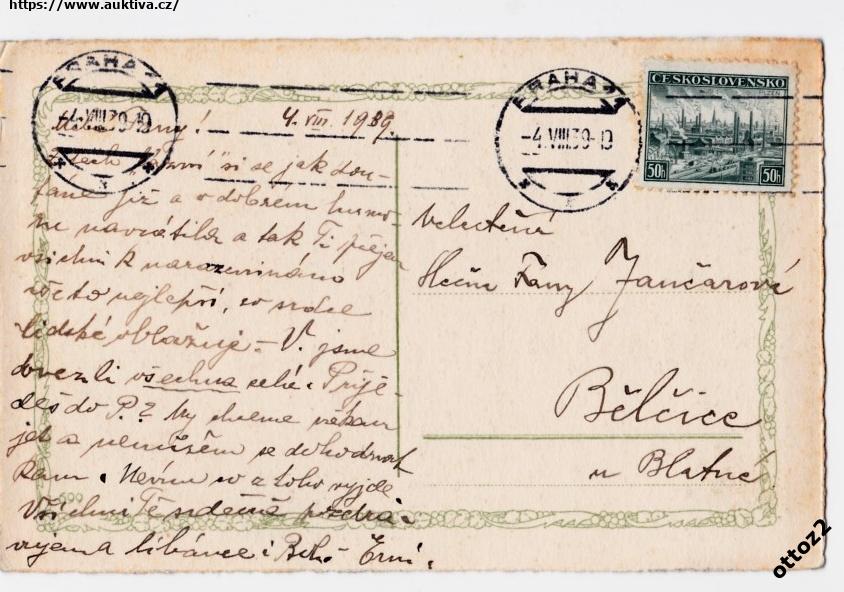 https://www.auktiva.cz/
PRAHA 11
-4.VIII.39-19
PRAHA 11
-4.VIII.39-19
ČESKOSLOVENSKO
PLZEŇ
50h 50h
Milá Fany! 4. VIII. 1939.
si se jak dou-
fáme již a v dobrém humo-
ru navrátila a tak Ti přejem
všichni k narozeninám
všeto nejlepší, co srdce
lidské oblažuje. – V. jsme
dovezli všechna celé. Přije-
deš do P.? My chceme někam
jet a nemůžem se dohodnout
kam. Nevím co z toho vyjde
Všichni Tě srdečně pozdra-
vujem a líbáme i Erní.
699
Velectěná
slečna Fany Jančarová
Bělčice
u Blatné
ottoz2